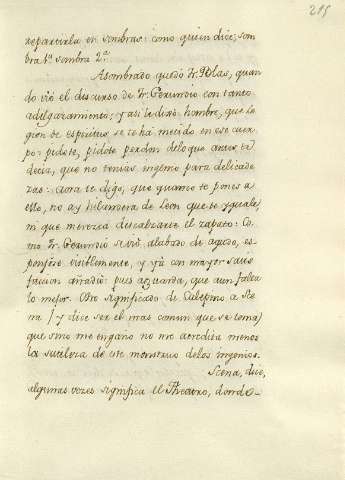 215
repartirla en sombras: como quien dice, som
bra 1ª sombra 2ª
Asombrado quedó Fr. Blas, quan
do vió el discurso de Fr. Gerundio con tanto
adelgazamiento; y así le dixo: hombre, que le
gion de espiritus se te há metido en ese cuer
po: pidote, pidote perdon de lo que antes te
decia, que no tenias ingenio para delicade
zas: aora te digo, que quando te pones a
ello, no ay hilandera de Leon que te yguale,
ni que merezca descalzarte el zapato: Co
mo Fr. Gerundio se vió alabado de agudo, es
ponjose visiblemente, y yá con mayor satis
faccion añadió: pues aguarda, que aun falta
lo mejor. Otro significado de Calepino a Sce
na / y dice ser el mas comun que se toma)
que sino me engaño no me acredita menos
la sutileza de este monstruo de los ingenios.
Scena, dice,
algunas vezes significa el Theatro, donde-